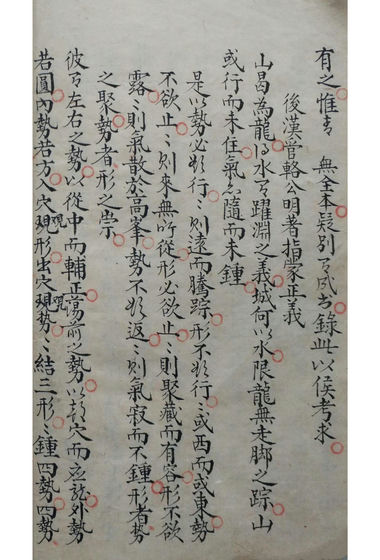 有之惟吉　無全本疑別有成书錄此以俟考求
後漢管輅公明著指蒙正義
山曷為龍以水有躍淵之義城何以水限龍無走脚之踪山
或行而未住氣亦隨而未鍾
是以勢必欲行〻則遠而騰踪形不欲行〻或西而或東勢
不欲止〻則來無所從形必欲止〻則聚藏而有容形不欲
露〻則氣散於高峯勢不欲返〻則氣寂而不鍾形者勢
之聚勢者形之崇
彼有左右之勢以從中而輔正蕩前之勢以彭穴而应龍外勢
若圓內勢若方入穴現形出穴現勢〻結三形〻鍾四勢四勢